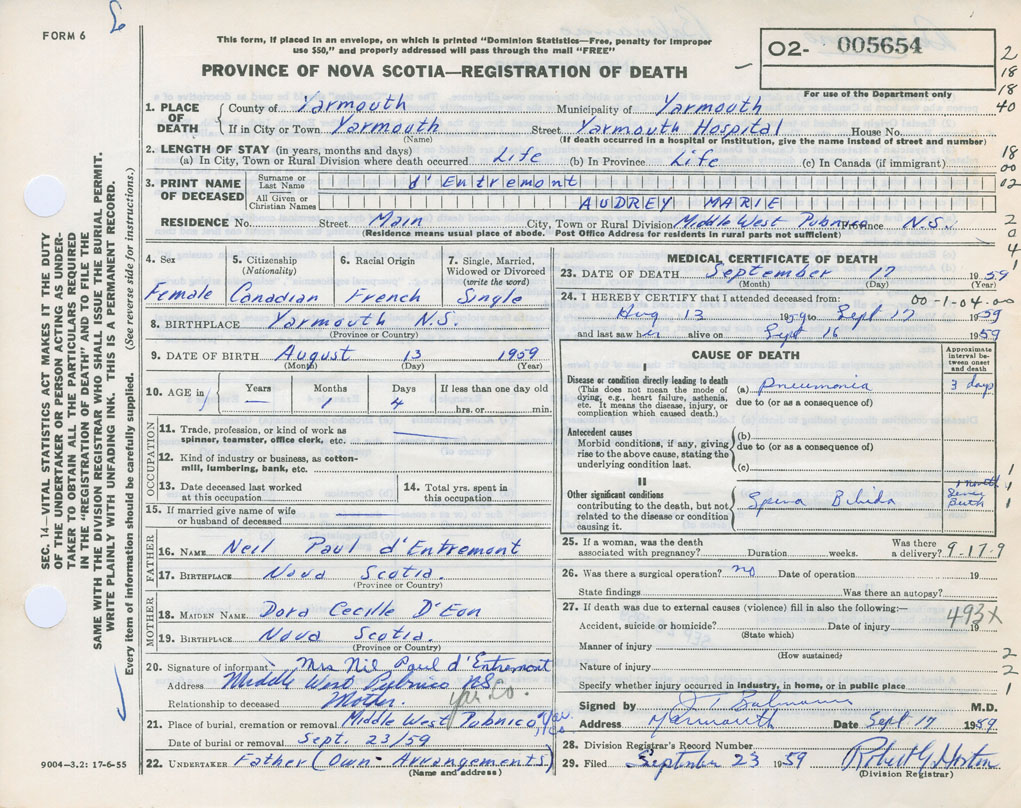 FORM 6
This form, if placed in an envelope, on which is printed "Dominion Statistics—Free, penalty for improper
use $50," and properly addressed will pass through the mail "FREE"
O2- 005654
For use of the Department only
PROVINCE OF NOVA SCOTIA—REGISTRATION OF DEATH
1. PLACE OF DEATH
County of Yarmouth Municipality of Yarmouth
If in City or Town Yarmouth Street Yarmouth Hospital House No.
(Name) (If death occurred in a hospital or institution, give the name instead of street and number)
2. LENGTH OF STAY (in years, months and days)
(a) In City, Town or Rural Division where death occurred Life (b) In Province Life (c) In Canada (if immigrant)
3. PRINT NAME OF DECEASED
Surname or Last Name d'Entremont
All Given or Christian Names AUDREY MARIE
RESIDENCE No. Street Main City, Town or Rural Division Middle West Pubnico Province N.S.
(Residence means usual place of abode. Post Office Address for residents in rural parts not sufficient)
4. Sex Female
5. Citizenship (Nationality) Canadian
6. Racial Origin French
7. Single, Married, Widowed or Divorced (write the word) Single
8. BIRTHPLACE Yarmouth N.S.
(Province or Country)
9. DATE OF BIRTH August 13 1959
(Month) (Day) (Year)
10. AGE in Years — Months 1 Days 4 If less than one day old hrs. or min.
OCCUPATION
11. Trade, profession, or kind of work as spinner, teamster, office clerk, etc.
12. Kind of industry or business, as cotton-mill, lumbering, bank, etc.
13. Date deceased last worked at this occupation
14. Total yrs. spent in this occupation
15. If married give name of wife or husband of deceased
FATHER
16. NAME Neil Paul d'Entremont
17. BIRTHPLACE Nova Scotia.
(Province or Country)
MOTHER
18. MAIDEN NAME Dora Cecille D'Eon
19. BIRTHPLACE Nova Scotia.
(Province or Country)
20. Signature of informant Mrs Nil Paul d'Entremont
Address Middle West Pubnico N.S.
Relationship to deceased Mother. Yar. Co.
21. Place of burial, cremation or removal Middle West Pubnico, Yar. Co.
Date of burial or removal Sept. 23/59
22. UNDERTAKER Father (Own Arrangements)
(Name and address)
MEDICAL CERTIFICATE OF DEATH
23. DATE OF DEATH September 17 1959
(Month) (Day) (Year)
24. I HEREBY CERTIFY that I attended deceased from: 00-1-04-00
Aug 13 1959 to Sept 17 1959
and last saw her alive on Sept 16 1959
CAUSE OF DEATH
Approximate interval between onset and death
I
Disease or condition directly leading to death
(This does not mean the mode of dying, e.g., heart failure, asthenia, etc. It means the disease, injury, or complication which caused death.)
(a) Pneumonia 3 days
due to (or as a consequence of)
Antecedent causes
Morbid conditions, if any, giving rise to the above cause, stating the underlying condition last.
(b)
due to (or as a consequence of)
(c)
II
Other significant conditions contributing to the death, but not related to the disease or condition causing it.
Spina Bifida 1 month Since Birth
25. If a woman, was the death associated with pregnancy? Duration weeks. Was there a delivery? 9-17-9
26. Was there a surgical operation? no Date of operation 19
State findings Was there an autopsy?
27. If death was due to external causes (violence) fill in also the following:—
493X
Accident, suicide or homicide? Date of injury 19
(State which)
Manner of injury
(How sustained)
Nature of injury
Specify whether injury occurred in industry, in home, or in public place
Signed by M.D.
Address Yarmouth Date Sept 17 1959
28. Division Registrar's Record Number
29. Filed September 23 1959 Robert G. Horton
(Division Registrar)
9004—3.2: 17-6-55
SEC. 14—VITAL STATISTICS ACT MAKES IT THE DUTY
OF THE UNDERTAKER OR PERSON ACTING AS UNDER-
TAKER TO OBTAIN ALL THE PARTICULARS REQUIRED
IN THE "REGISTRATION OF DEATH" AND FILE THE
SAME WITH THE DIVISION REGISTRAR WHO SHALL ISSUE THE BURIAL PERMIT.
WRITE PLAINLY WITH UNFADING INK. THIS IS A PERMANENT RECORD.
Every item of information should be carefully supplied. (See reverse side for instructions.)
2
18
18
40
18
00
02
2
0
4
1
1
1
1
2
2
1